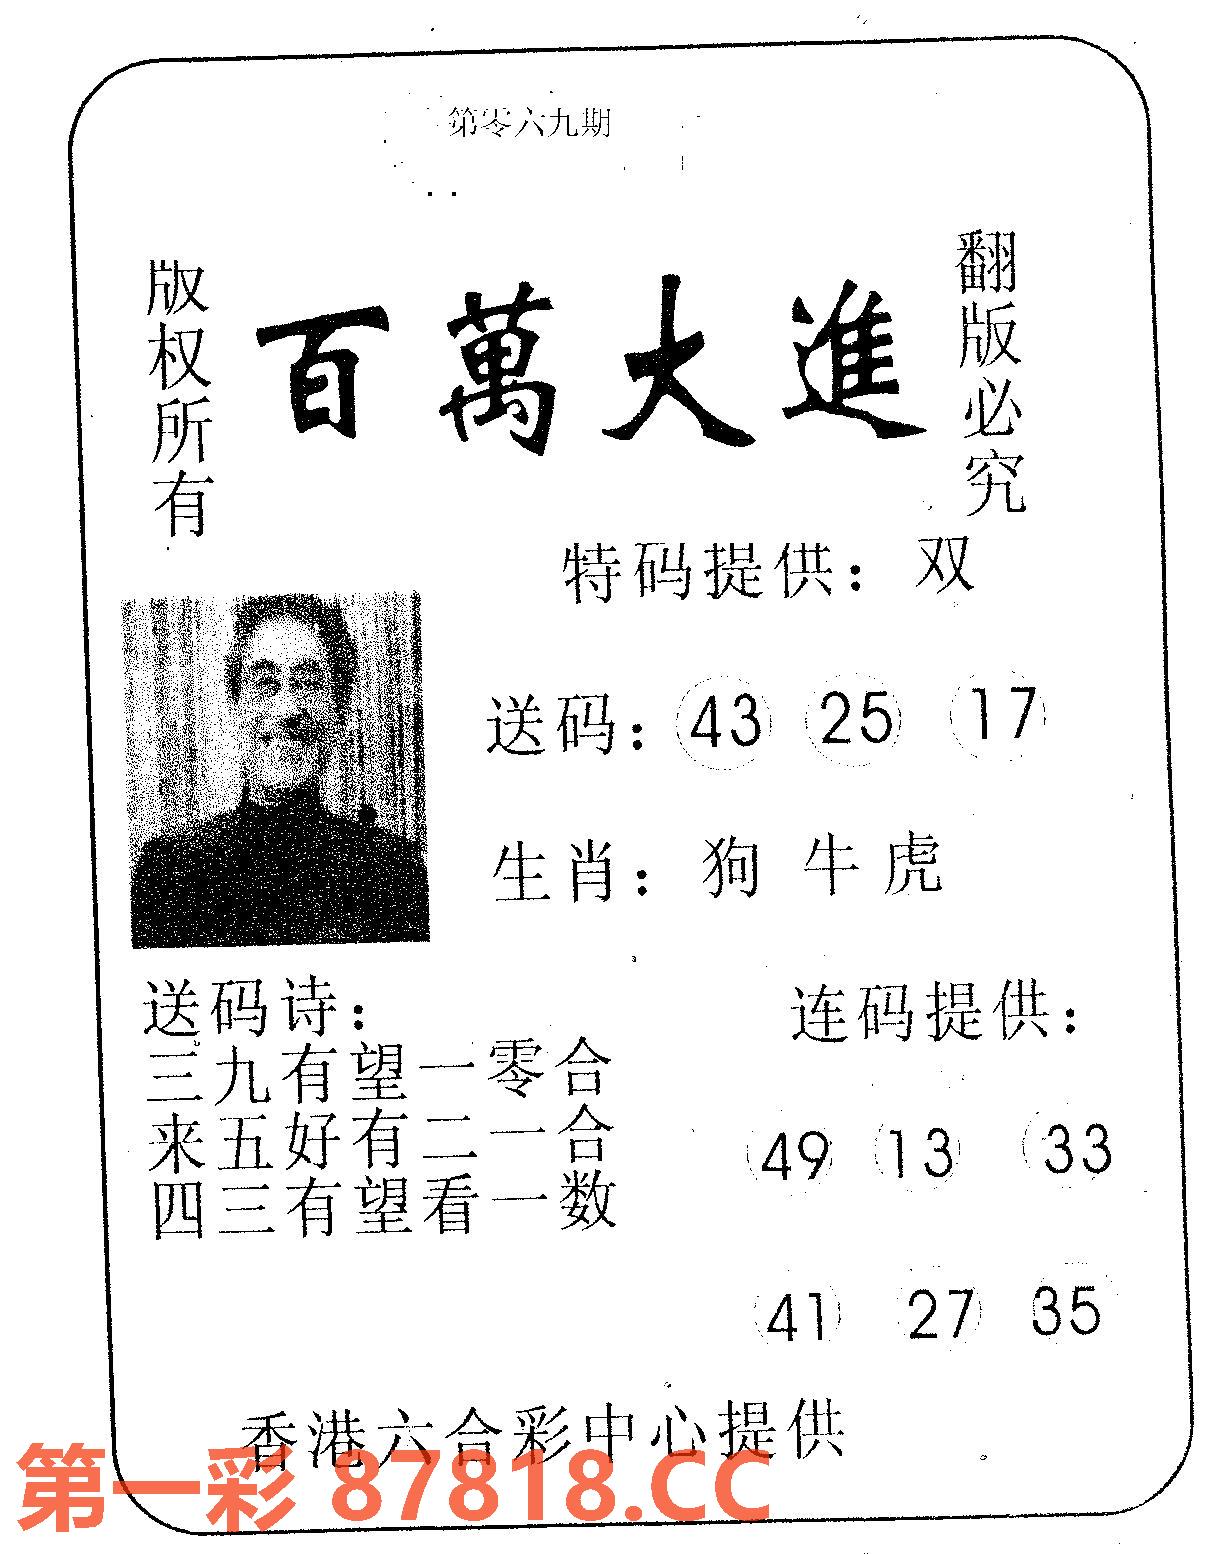 第零六九期
版权所有
百萬大進
翻版必究
特码提供：双
送码：43 25 17
生肖：狗 牛 虎
送码诗：
三九有望一零合
来五好有二一合
四三有望看一数
连码提供：
49 13 33
41 27 35
香港六合彩中心提供
第一彩 87818.CC